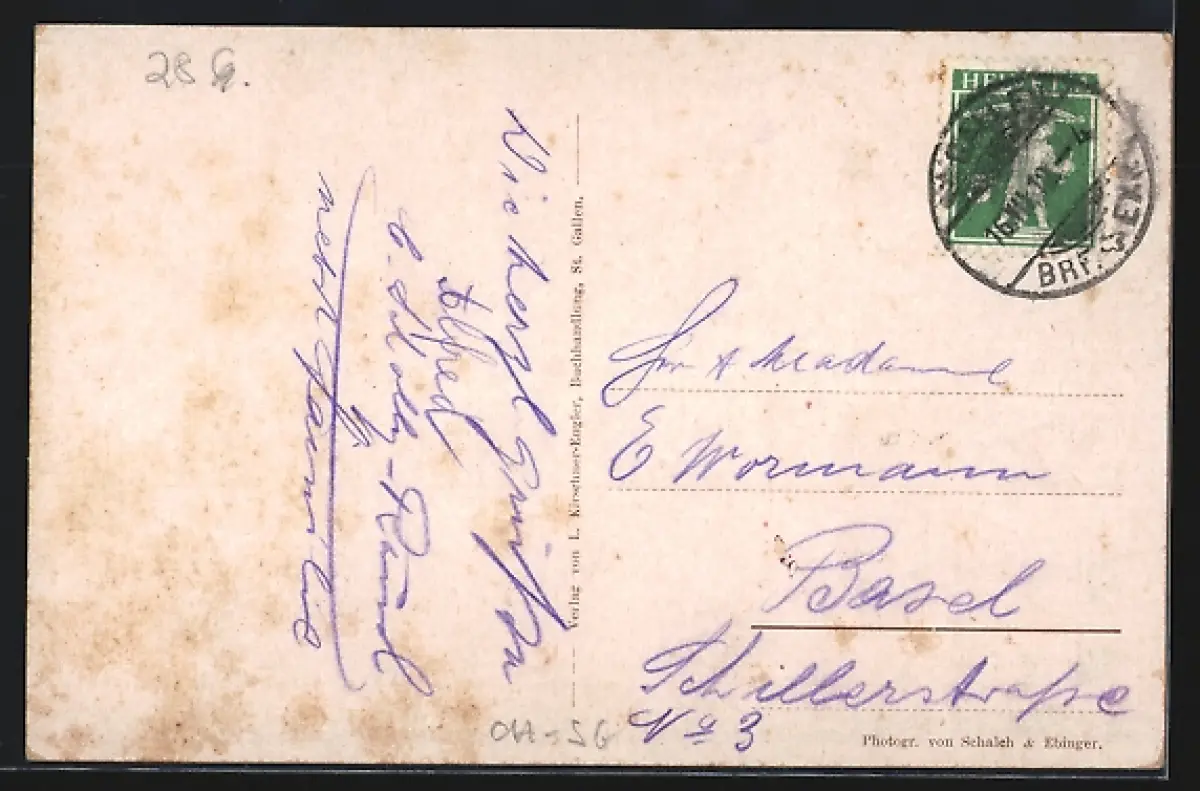 28
Viel herzl Grüße
Alfred
nebst Familie
Verlag von L. Kirschner-Engler, Buchhandlung, St. Gallen.
HELVETIA
BRF.
Madame
E Wormann
Basel
Schillerstraße
No 3
CH-SG
Photogr. von Schalch & Ebinger.